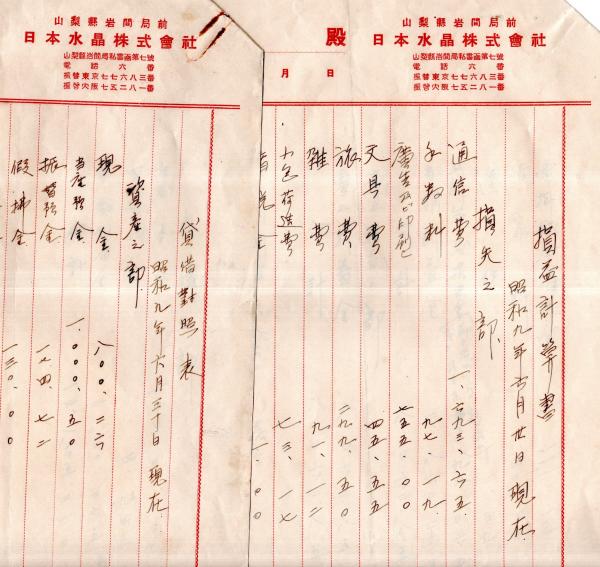 山梨縣岩間局前
日本水晶株式會社
山梨縣岩間局私書函第七號
電話六番
振替東京七七六八三番
振替大阪七五二八一番
殿
月日
損益計算書
昭和九年六月卅日現在
損失之部
通信費 一、六九三、六五
手数料 九七、一九
廣告及ビ印刷 七五五、〇〇
文具費 四五、五〇
旅費 二九九、五〇
雑費 九一、一二
小包荷造費 七三、一七
金 一、〇〇
山梨縣岩間局前
日本水晶株式會社
山梨縣岩間局私書函第七號
電話六番
振替東京七七六八三番
振替大阪七五二八一番
貸借對照表
昭和九年六月三十日現在
資産之部
現金 八〇〇、二六
当座預金 一、〇〇〇、五〇
振替預金 一七四、七二
假拂金 一三〇、〇〇